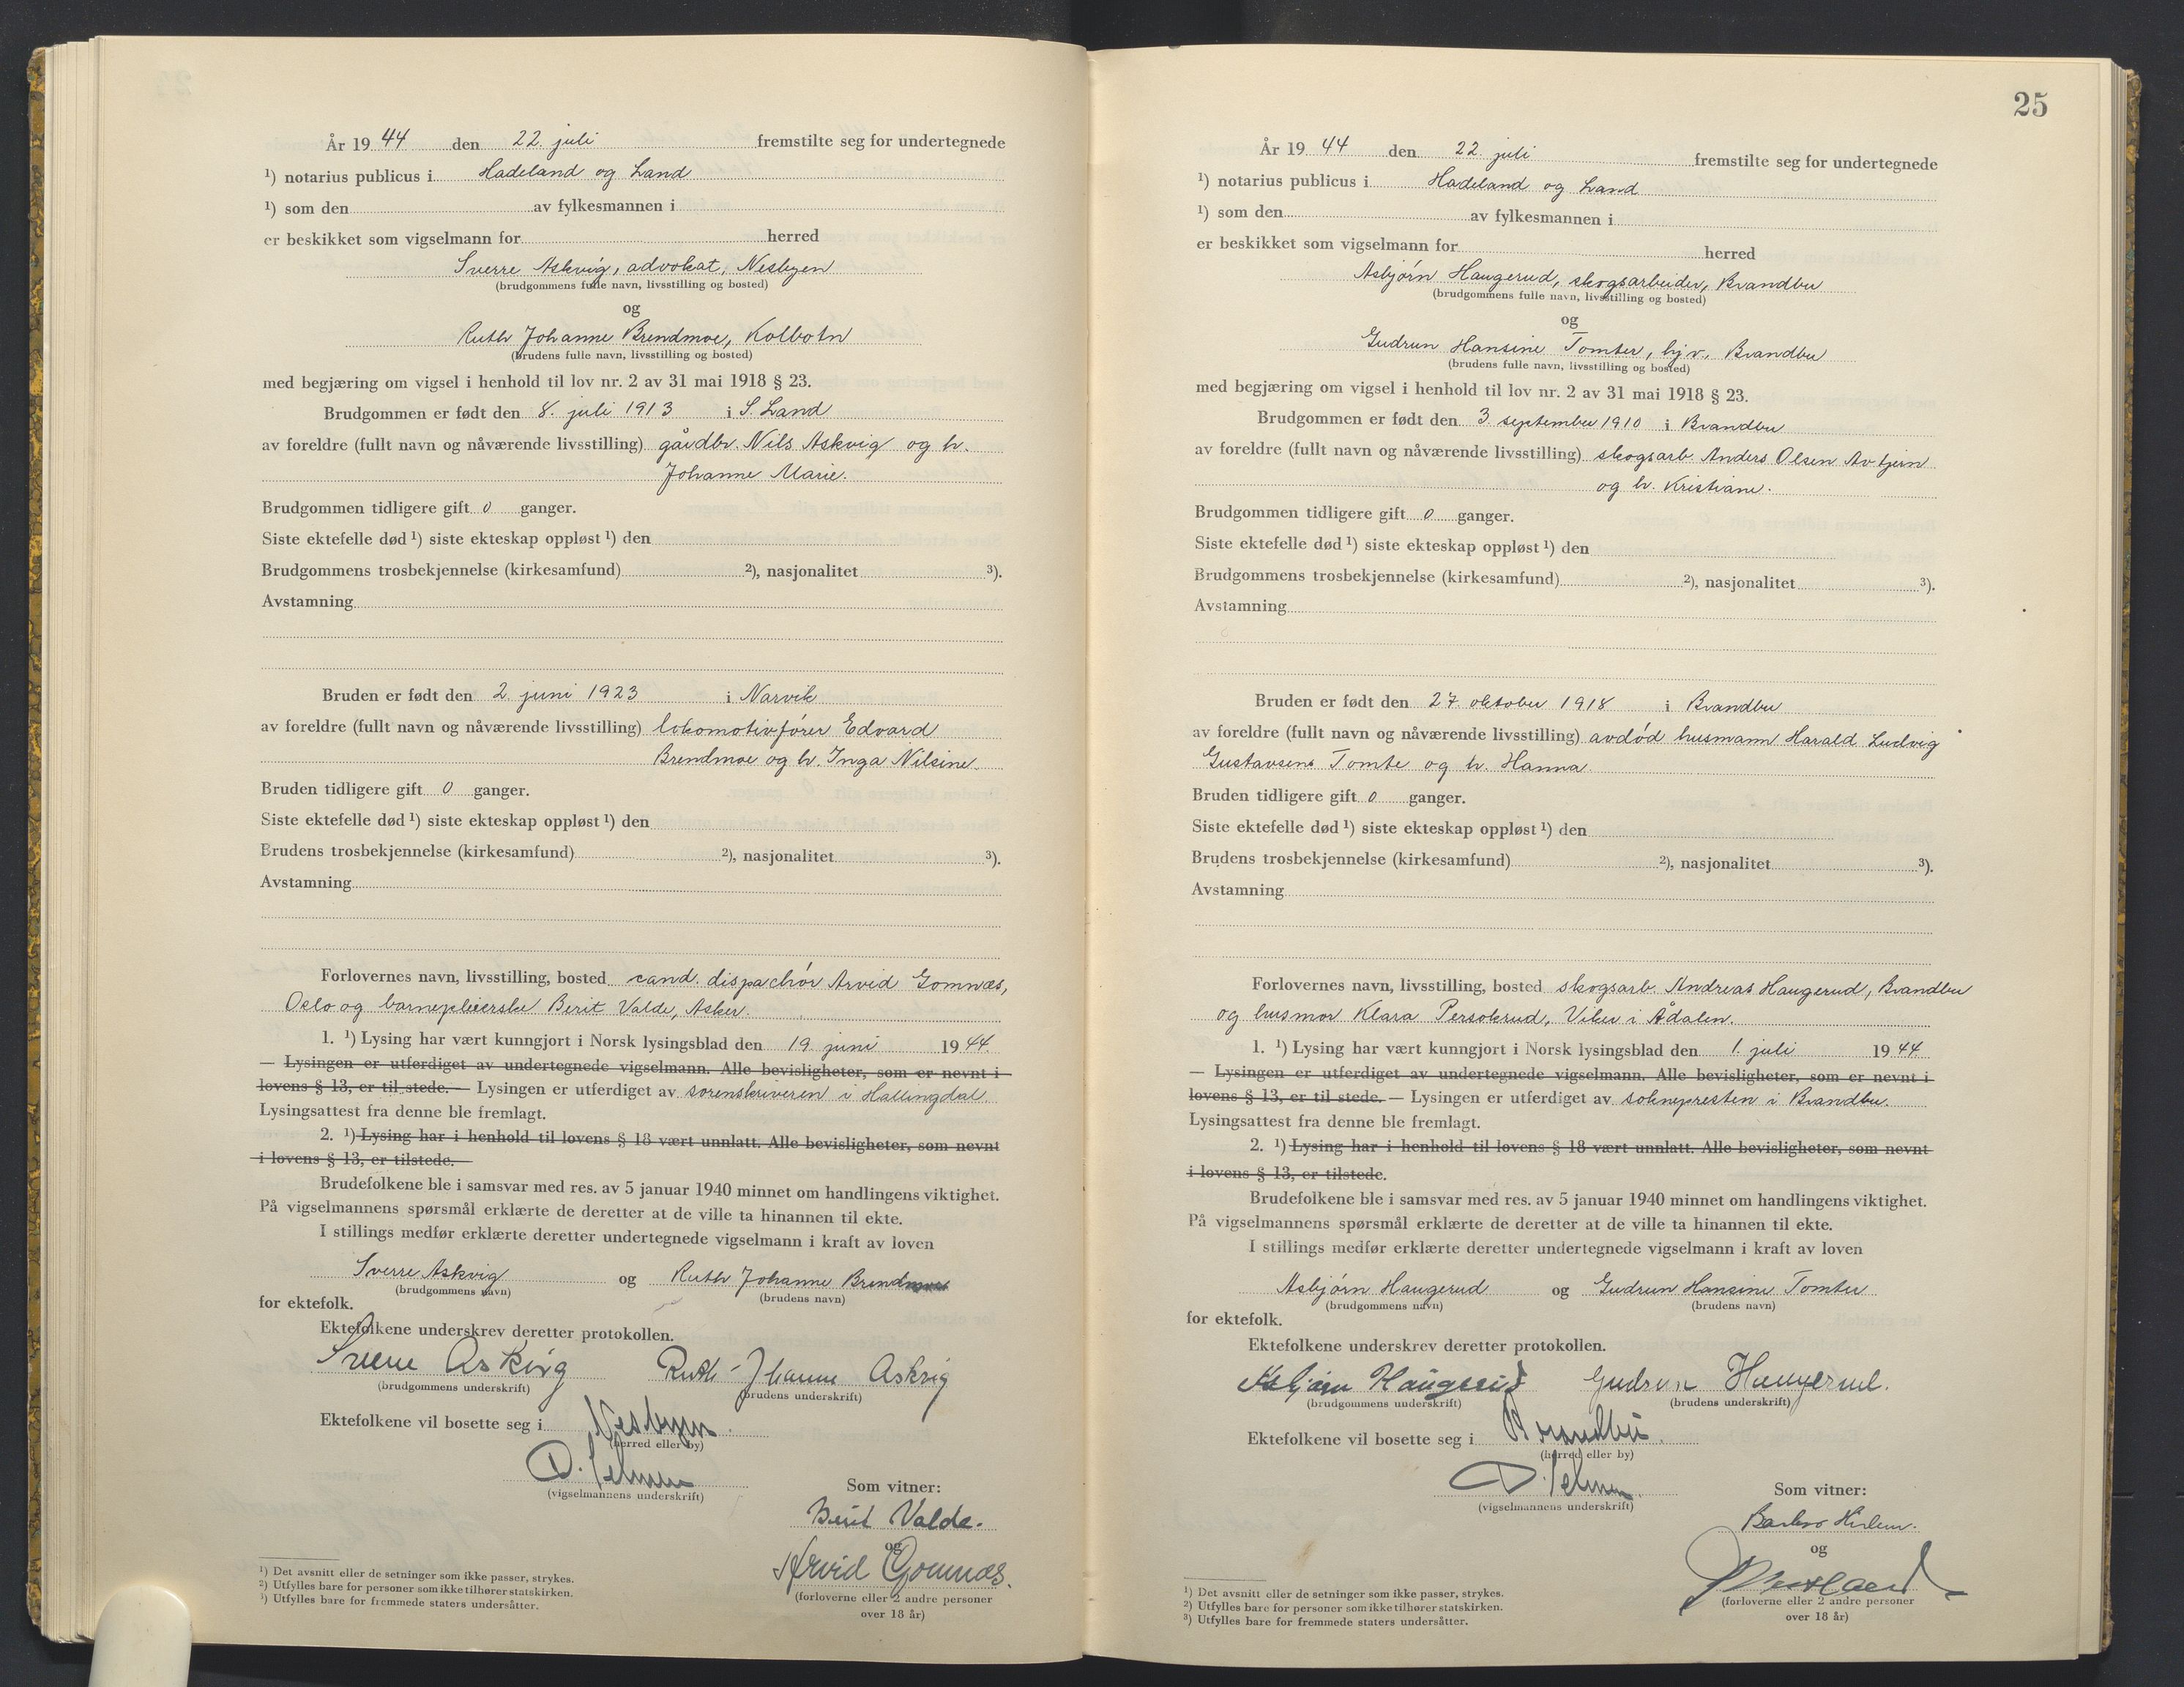 År 19 44 den 22. juli fremstilte seg for undertegnede
¹) notarius publicus i Hadeland og Land
¹) som den av fylkesmannen i
er beskikket som vigselmann for herred
Sverre Askvig, advokat, Nesbyen
(brudgommens fulle navn, livsstilling og bosted)
og
Ruth Johanne Brendmoe, Kolbotn
(brudens fulle navn, livsstilling og bosted)
med begjæring om vigsel i henhold til lov nr. 2 av 31 mai 1918 § 23.
Brudgommen er født den 8. juli 1913 i S. Land
av foreldre (fullt navn og nåværende livsstilling) gårdbr. Nils Askvig og h.
Johanne Marie.
Brudgommen tidligere gift 0 ganger.
Siste ektefelle død ¹) siste ekteskap oppløst ¹) den
Brudgommens trosbekjennelse (kirkesamfund) ²), nasjonalitet ³).
Avstamning
Bruden er født den 2. juni 1923 i Narvik
av foreldre (fullt navn og nåværende livsstilling) lokomotivfører Edvard
Brendmoe og h. Inga Nilsine.
Bruden tidligere gift 0 ganger.
Siste ektefelle død ¹) siste ekteskap oppløst ¹) den
Brudens trosbekjennelse (kirkesamfund) ²), nasjonalitet ³).
Avstamning
Forlovernes navn, livsstilling, bosted cand. dispachør Arvid Gomnæs,
Oslo og barnepleierske Berit Valde, Asker.
1. ¹) Lysing har vært kunngjort i Norsk lysingsblad den 19. juni 19 44.
— Lysingen er utferdiget av undertegnede vigselmann. Alle bevisligheter, som er nevnt i
lovens § 13, er til stede. — Lysingen er utferdiget av sorenskriveren i Hallingdal.
Lysingsattest fra denne ble fremlagt.
2. ¹) Lysing har i henhold til lovens § 18 vært unnlatt. Alle bevisligheter, som nevnt
i lovens § 13, er tilstede.
Brudefolkene ble i samsvar med res. av 5 januar 1940 minnet om handlingens viktighet.
På vigselmannens spørsmål erklærte de deretter at de ville ta hinannen til ekte.
I stillings medfør erklærte deretter undertegnede vigselmann i kraft av loven
Sverre Askvig og Ruth Johanne Brendmoe
(brudgommens navn) (brudens navn)
for ektefolk.
Ektefolkene underskrev deretter protokollen.
Sverre Askvig Ruth Johanne Askvig
(brudgommens underskrift) (brudens underskrift)
Ektefolkene vil bosette seg i Nesbyen.
(herred eller by)
(vigselmannens underskrift)
Som vitner:
Berit Valde.
og
Arvid Gomnæs.
(forloverne eller 2 andre personer
over 18 år)
¹) Det avsnitt eller de setninger som ikke passer, strykes.
²) Utfylles bare for personer som ikke tilhører statskirken.
³) Utfylles bare for fremmede staters undersåtter.
25
År 19 44 den 22. juli fremstilte seg for undertegnede
¹) notarius publicus i Hadeland og Land
¹) som den av fylkesmannen i
er beskikket som vigselmann for herred
Asbjørn Haugerud, skogsarbeider, Brandbu
(brudgommens fulle navn, livsstilling og bosted)
og
Gudrun Hansine Tomter, hj.v., Brandbu
(brudens fulle navn, livsstilling og bosted)
med begjæring om vigsel i henhold til lov nr. 2 av 31 mai 1918 § 23.
Brudgommen er født den 3. september 1910 i Brandbu
av foreldre (fullt navn og nåværende livsstilling) skogsarb. Anders Olsen Avtjern
og h. Kristiane.
Brudgommen tidligere gift 0 ganger.
Siste ektefelle død ¹) siste ekteskap oppløst ¹) den
Brudgommens trosbekjennelse (kirkesamfund) ²), nasjonalitet ³).
Avstamning
Bruden er født den 27. oktober 1918 i Brandbu
av foreldre (fullt navn og nåværende livsstilling) avdød husmann Harald Ludvig
Gustavsens Tomte og h. Hanna.
Bruden tidligere gift 0 ganger.
Siste ektefelle død ¹) siste ekteskap oppløst ¹) den
Brudens trosbekjennelse (kirkesamfund) ²), nasjonalitet ³).
Avstamning
Forlovernes navn, livsstilling, bosted skogsarb. Andreas Haugerud, Brandbu
og husmor Klara Persokrud, Viker i Ådalen.
1. ¹) Lysing har vært kunngjort i Norsk lysingsblad den 1. juli 19 44
— Lysingen er utferdiget av undertegnede vigselmann. Alle bevisligheter, som er nevnt i
lovens § 13, er til stede. — Lysingen er utferdiget av soknepresten i Brandbu.
Lysingsattest fra denne ble fremlagt.
2. ¹) Lysing har i henhold til lovens § 18 vært unnlatt. Alle bevisligheter, som nevnt
i lovens § 13, er tilstede.
Brudefolkene ble i samsvar med res. av 5 januar 1940 minnet om handlingens viktighet.
På vigselmannens spørsmål erklærte de deretter at de ville ta hinannen til ekte.
I stillings medfør erklærte deretter undertegnede vigselmann i kraft av loven
Asbjørn Haugerud og Gudrun Hansine Tomter
(brudgommens navn) (brudens navn)
for ektefolk.
Ektefolkene underskrev deretter protokollen.
Asbjørn Haugerud Gudrun Haugerud.
(brudgommens underskrift) (brudens underskrift)
Ektefolkene vil bosette seg i Brandbu.
(herred eller by)
(vigselmannens underskrift)
Som vitner:
og
(forloverne eller 2 andre personer
over 18 år)
¹) Det avsnitt eller de setninger som ikke passer, strykes.
²) Utfylles bare for personer som ikke tilhører statskirken.
³) Utfylles bare for fremmede staters undersåtter.